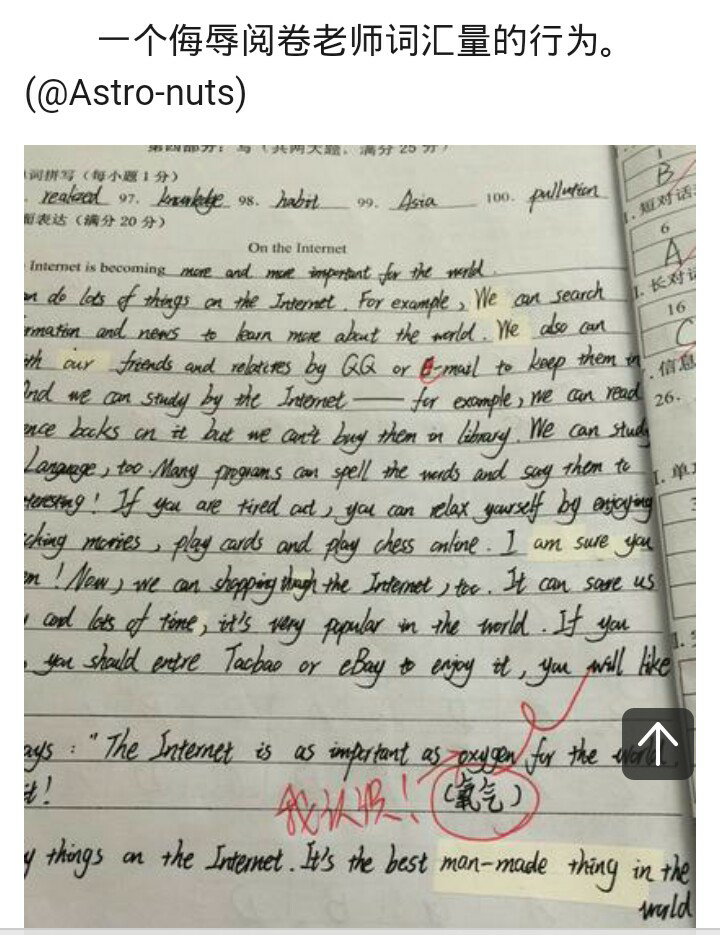 一个侮辱阅卷老师词汇量的行为。
(@Astro-nuts)
词拼写（每小题1分）
realized 97. knowledge 98. habit 99. Asia 100. pullution
面表达（满分20分）
On the Internet
Internet is becoming more and more important for the world.
do lots of things on the Internet. For example, We can search
and news to learn more about the world. We also can
our friends and relatives by QQ or E-mail to keep them in
And we can study by the Internet —— for example, we can read
books on it but we can't buy them in library. We can study
Language, too. Many programs can spell the words and say them to
! If you are tired out, you can relax yourself by enjoying
movies, play cards and play chess online. I am sure you
! Now, we can shopping though the Internet, too. It can save us
and lots of time, it's very popular in the world. If you
, you should entre Taobao or eBay to enjoy it, you will like
: "The Internet is as important as oxygen for the world.
it!
(氧气)
我认识！
things on the Internet. It's the best man-made thing in the
world
1
B
短对话
6
A
长对话
16
C
信息
26.
单